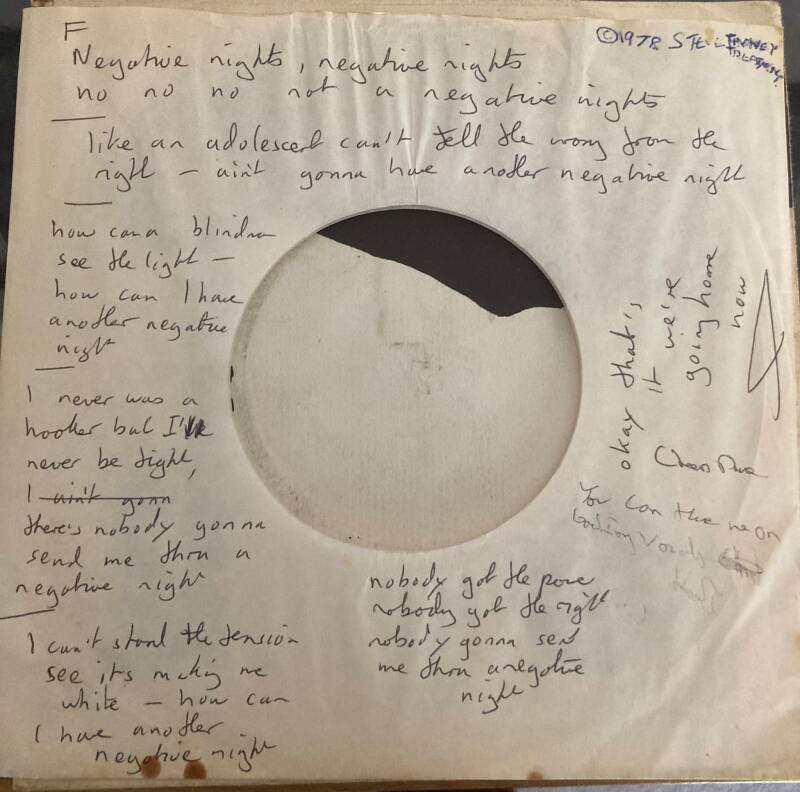 F
©1978 STE
Negative nights, negative nights
no no no not a negative nights
like an adolescent can't tell the wrong from the
right — ain't gonna have another negative night
how can a blindman
see the light —
how can I have
another negative
night
I never was a
hooker but I'll
never be tight,
I ain't gonn
there's nobody gonna
send me thru a
negative night
I can't stand the tension
see it's making me
white — how can
I have another
negative night
nobody got the power
nobody got the right
nobody gonna send
me thru a negative
night
okay that's
it we're
going home
now
Cheers
You can the me on
backing vocals